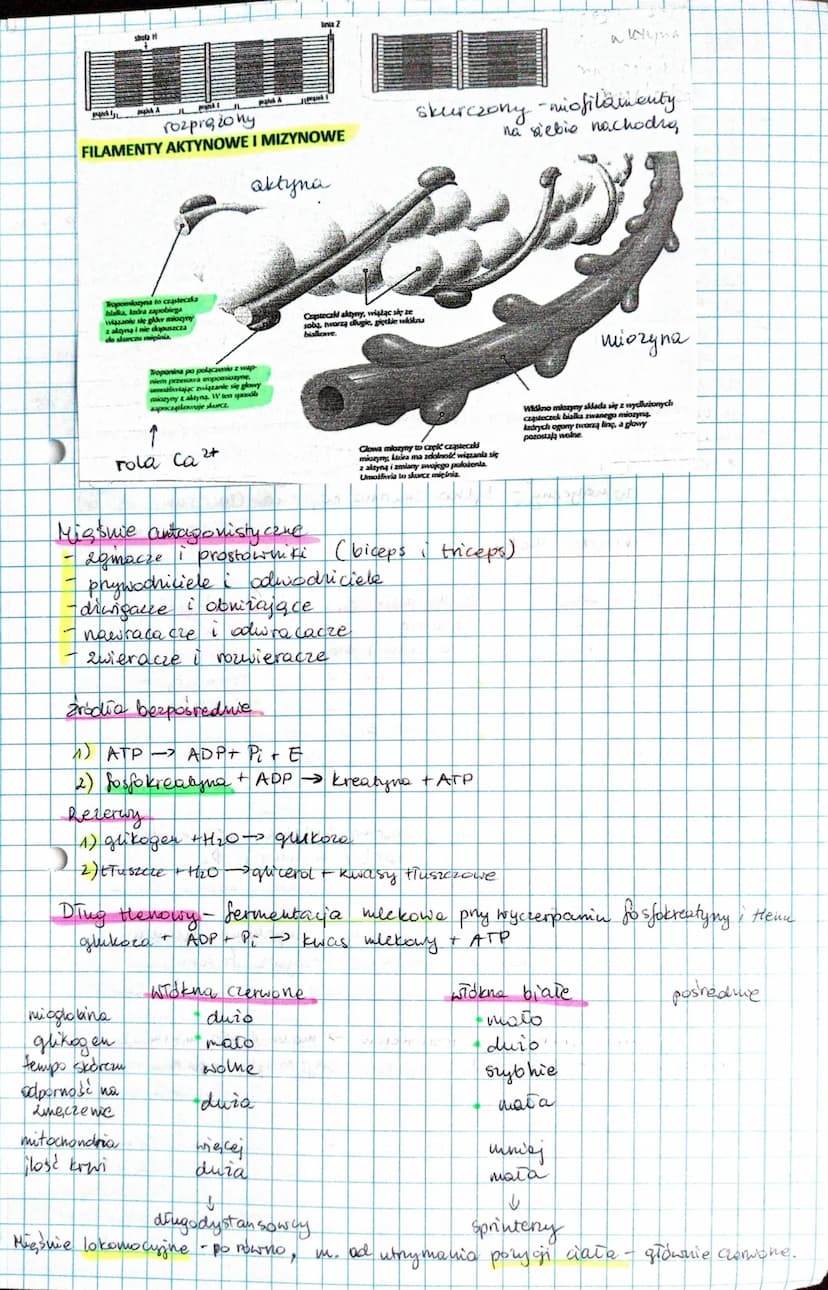 strefa H
linia Z
prążek I
prążek A
prążek I
prążek A
prążek I
rozprężony
skurczony - miofilamenty
na siebie nachodzą
FILAMENTY AKTYNOWE I MIZYNOWE
aktyna
Tropomiozyna to cząsteczka
białka, która zapobiega
wiązaniu się głów miozyny
z aktyną i nie dopuszcza
do skurczu mięśnia.
Cząsteczki aktyny, wiążąc się ze
sobą, tworzą długie, giętkie włókna
białkowe.
miozyna
Troponina po połączeniu z wap-
niem przesuwa tropomiozynę,
umożliwiając związanie się głowy
miozyny z aktyną. W ten sposób
zapoczątkowuje skurcz.
Włókno miozyny składa się z wydłużonych
cząsteczek białka zwanego miozyną,
których ogony tworzą linę, a głowy
pozostają wolne.
rola Ca²⁺
Głowa miozyny to część cząsteczki
miozyny, która ma zdolność wiązania się
z aktyną i zmiany swojego położenia.
Umożliwia to skurcz mięśnia.
Mięśnie antagonistyczne
- zginacze i prostowniki (biceps i triceps)
- przywodziciele i odwodziciele
- dźwigacze i obniżające
- nawracacze i odwracacze
- zwieracze i rozwieracze
źródła bezpośrednie
1) ATP → ADP + Pi + E
2) fosfokreatyna + ADP → kreatyna + ATP
Rezerwy
1) glikogen + H₂O → glukoza
2) tłuszcze + H₂O → glicerol + kwasy tłuszczowe
Dług tlenowy - fermentacja mlekowa przy wyczerpaniu fosfokreatyny i tlenu
glukoza + ADP + Pi → kwas mlekowy + ATP
włókna czerwone włókna białe pośrednie
mioglobina dużo mało
glikogen mało dużo
tempo skórczu wolne szybkie
odporność na
zmęczenie duża mała
mitochondria więcej mniej
ilość krwi duża mała
↓ ↓
długodystansowcy sprinterzy
Mięśnie lokomocyjne - po równo, m. od utrzymania pozycji ciała - głównie czerwone.